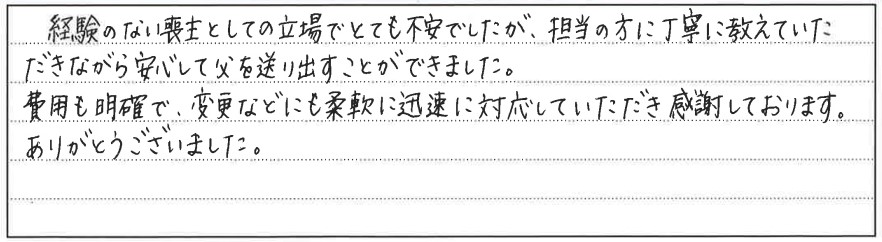 経験のない喪主としての立場でとても不安でしたが、担当の方に丁寧に教えていた
だきながら安心して父を送り出すことができました。
費用も明確で、変更などにも柔軟に迅速に対応していただき感謝しております。
ありがとうございました。